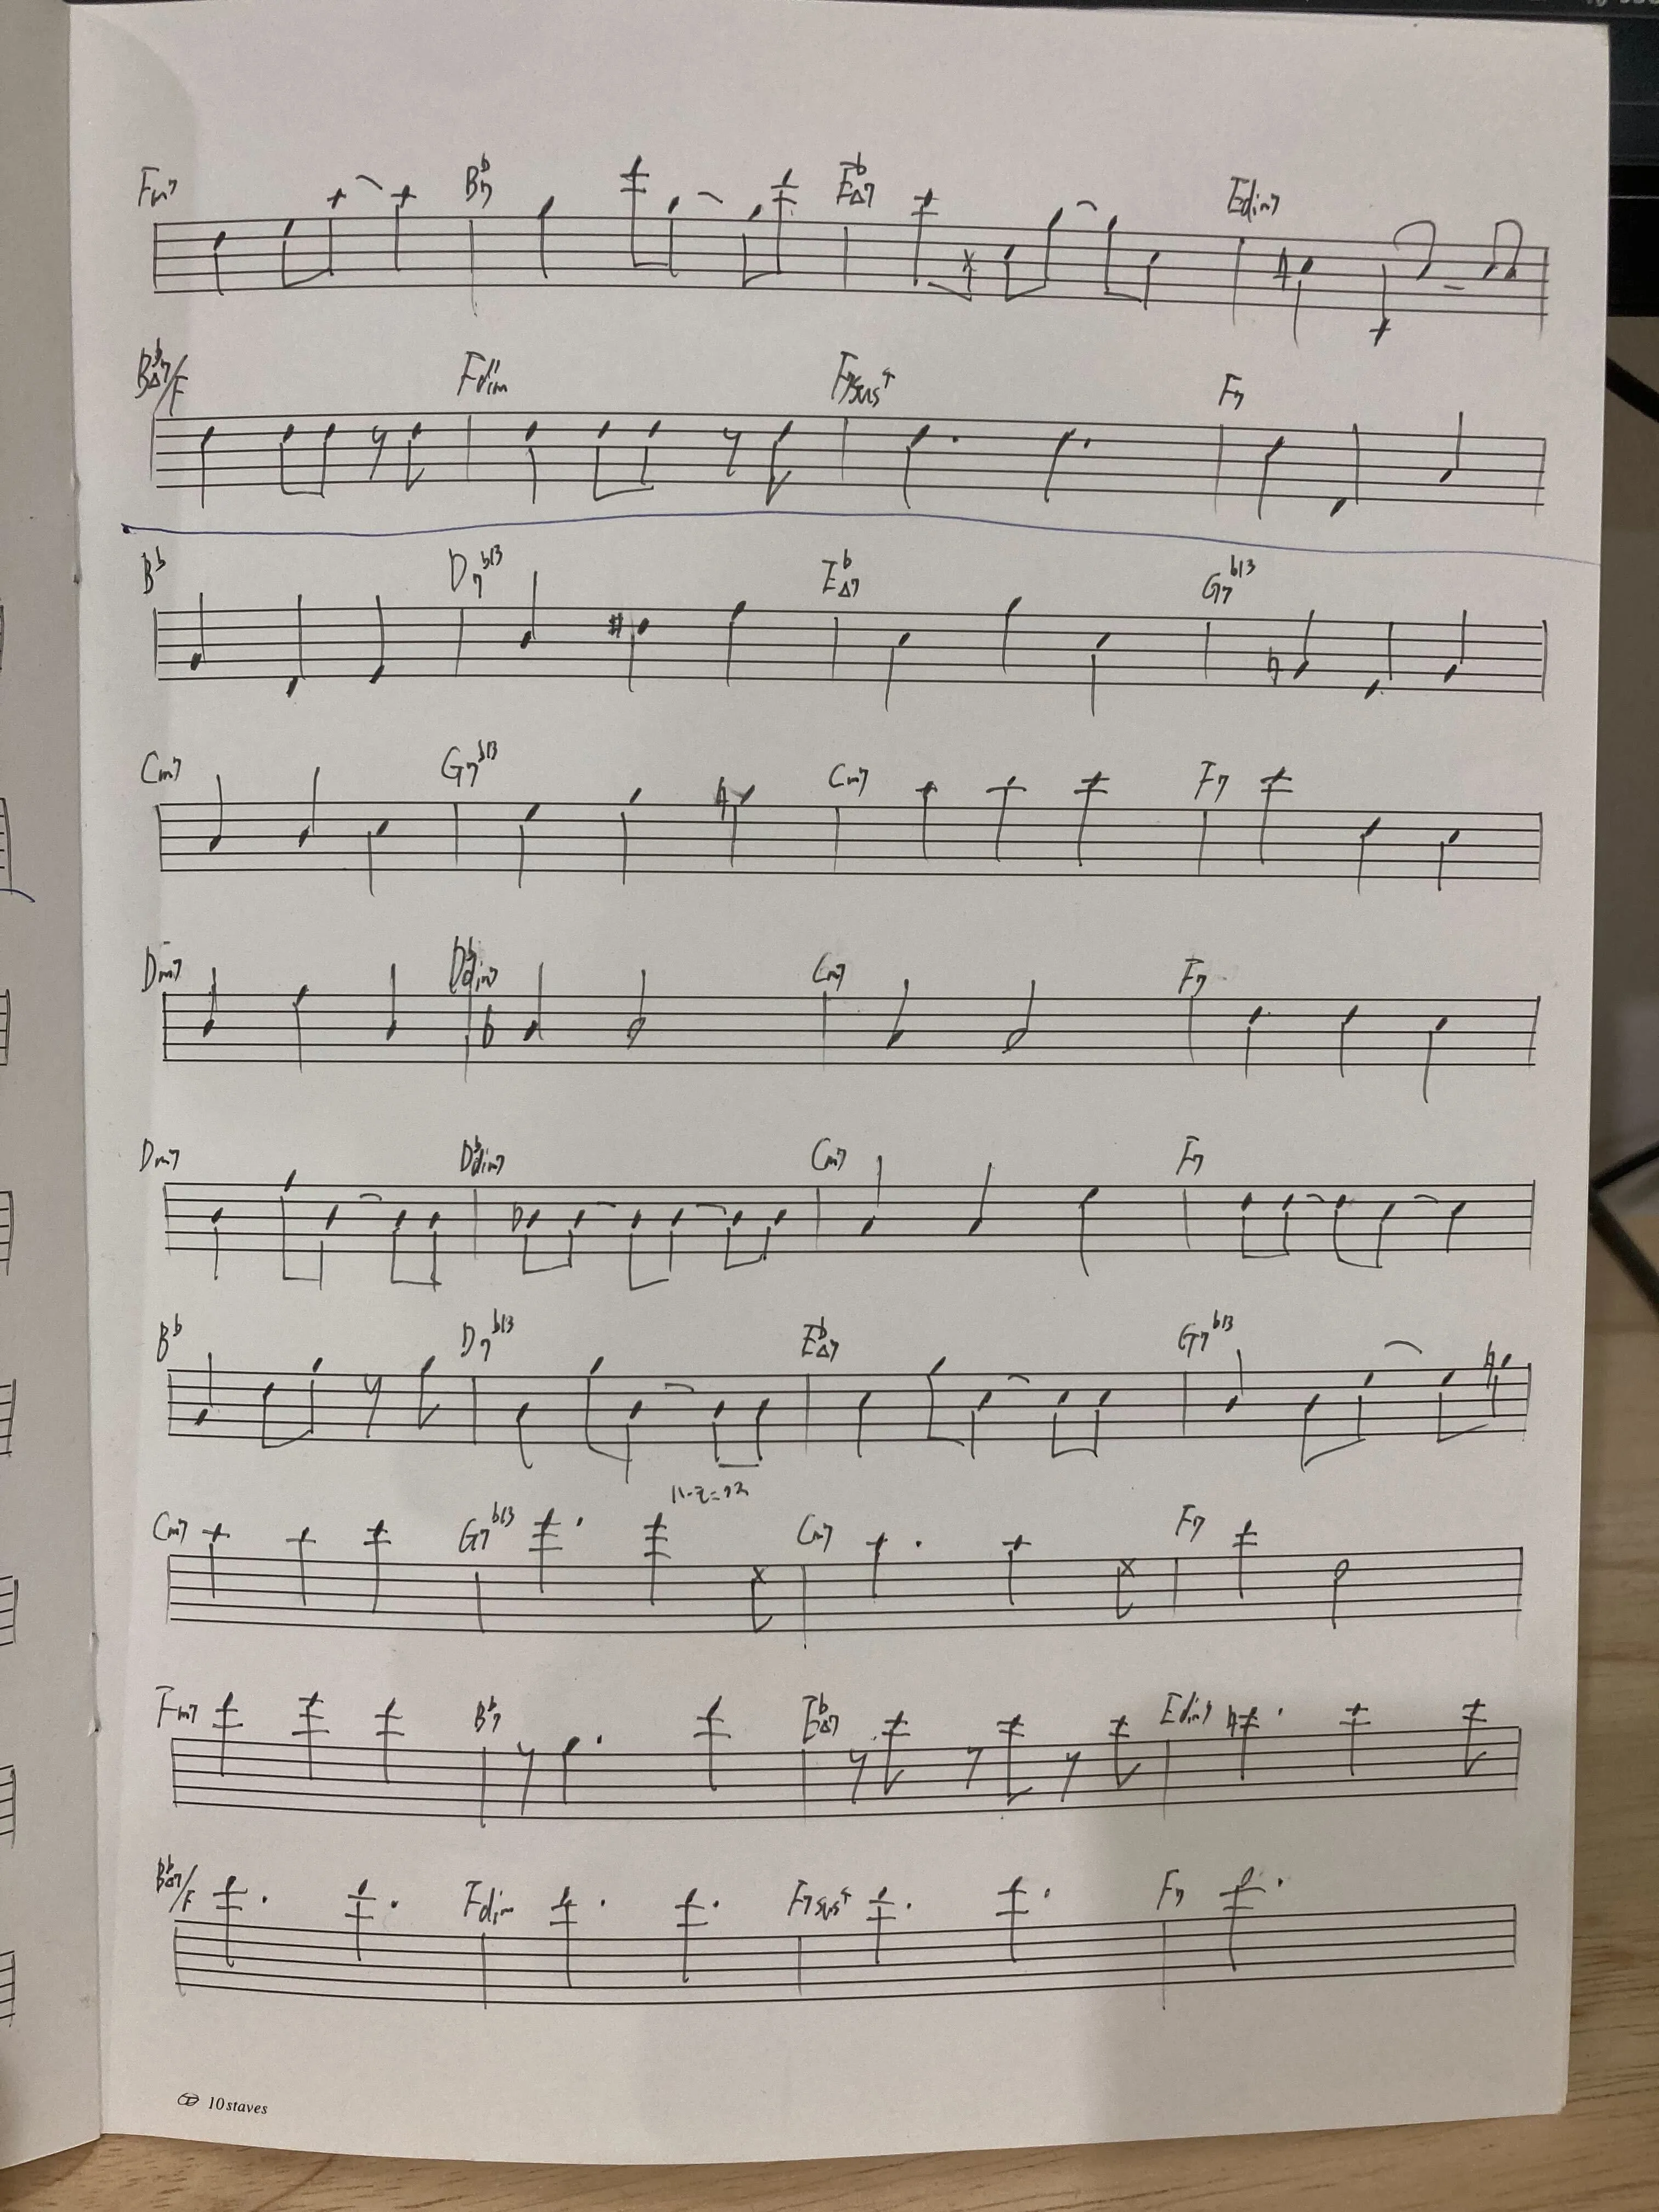 Fm7 B♭7 E♭△7 Edim7
B♭△7/F Fdim F7sus4 F7
B♭ D7♭13 E♭△7 G7♭13
Cm7 G7♭13 Cm7 F7
Dm7 D♭dim7 Cm7 F7
Dm7 D♭dim7 Cm7 F7
B♭ D7♭13 E♭△7 G7♭13
Cm7 G7♭13 Cm7 F7
Fm7 B♭7 E♭△7 Edim7
B♭△7/F Fdim F7sus4 F7
10 staves